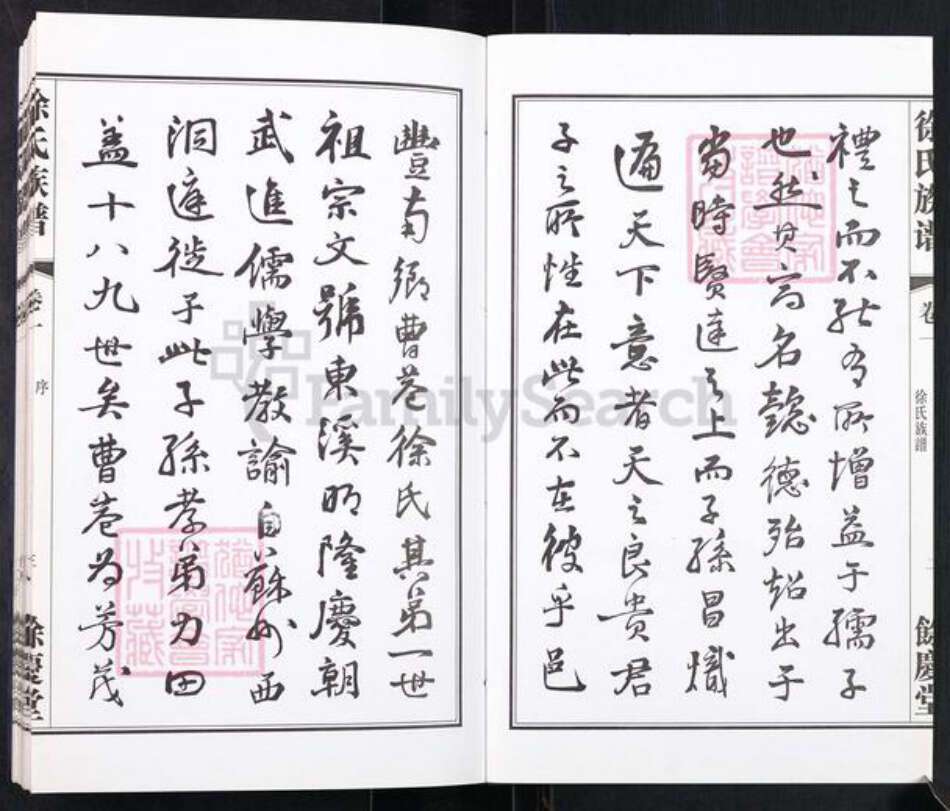 徐氏族谱
卷一
徐氏族譜
餘慶堂
禮之而不能有所增益于孺子
也然其高名懿德殆超出于
當時賢達之上而子孫昌熾
遍天下意者天之良貴君
子之所性在此而不在彼乎邑
豐南鄉曹巷徐氏其第一世
祖宗文號東溪明隆慶朝
武進儒學教諭自蘇州西
洞庭徙于此子孫孝弟力田
盖十八九世矣曹巷为芳茂
徐氏族譜
卷一
序
三
餘慶堂
FamilySearch